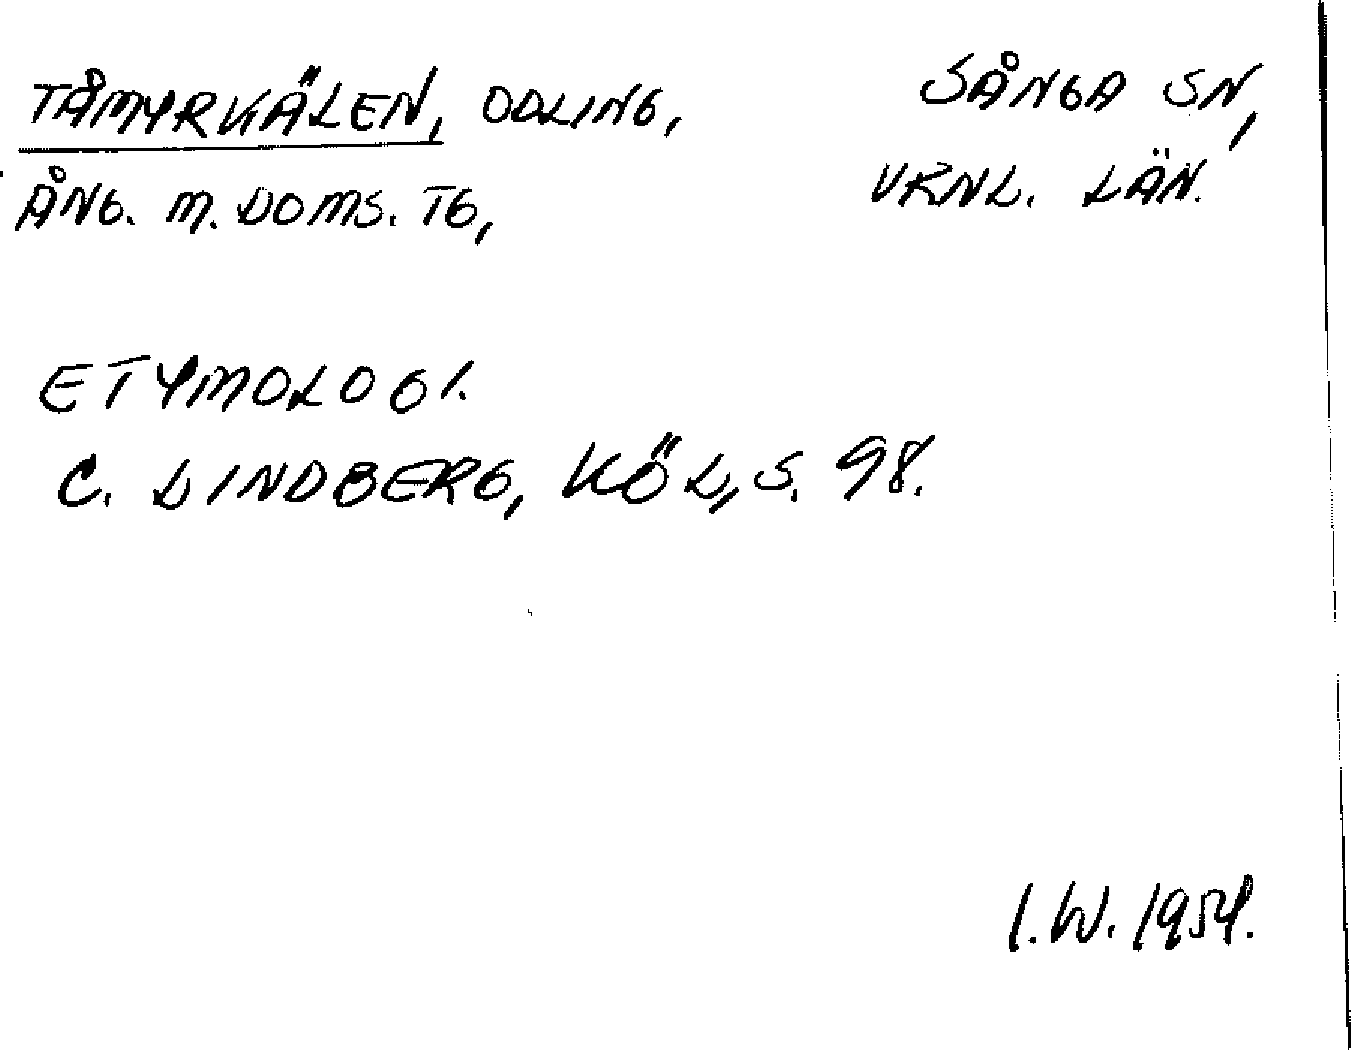 TÅMYRKÄLEN, ODLING, SÅNGA SN,
ÅNG. M. DOMS. TG, VRNL. LÄN.
ETYMOLOGI.
C. LINDBERG, KÖL, S. 98.
I.W. 1954.